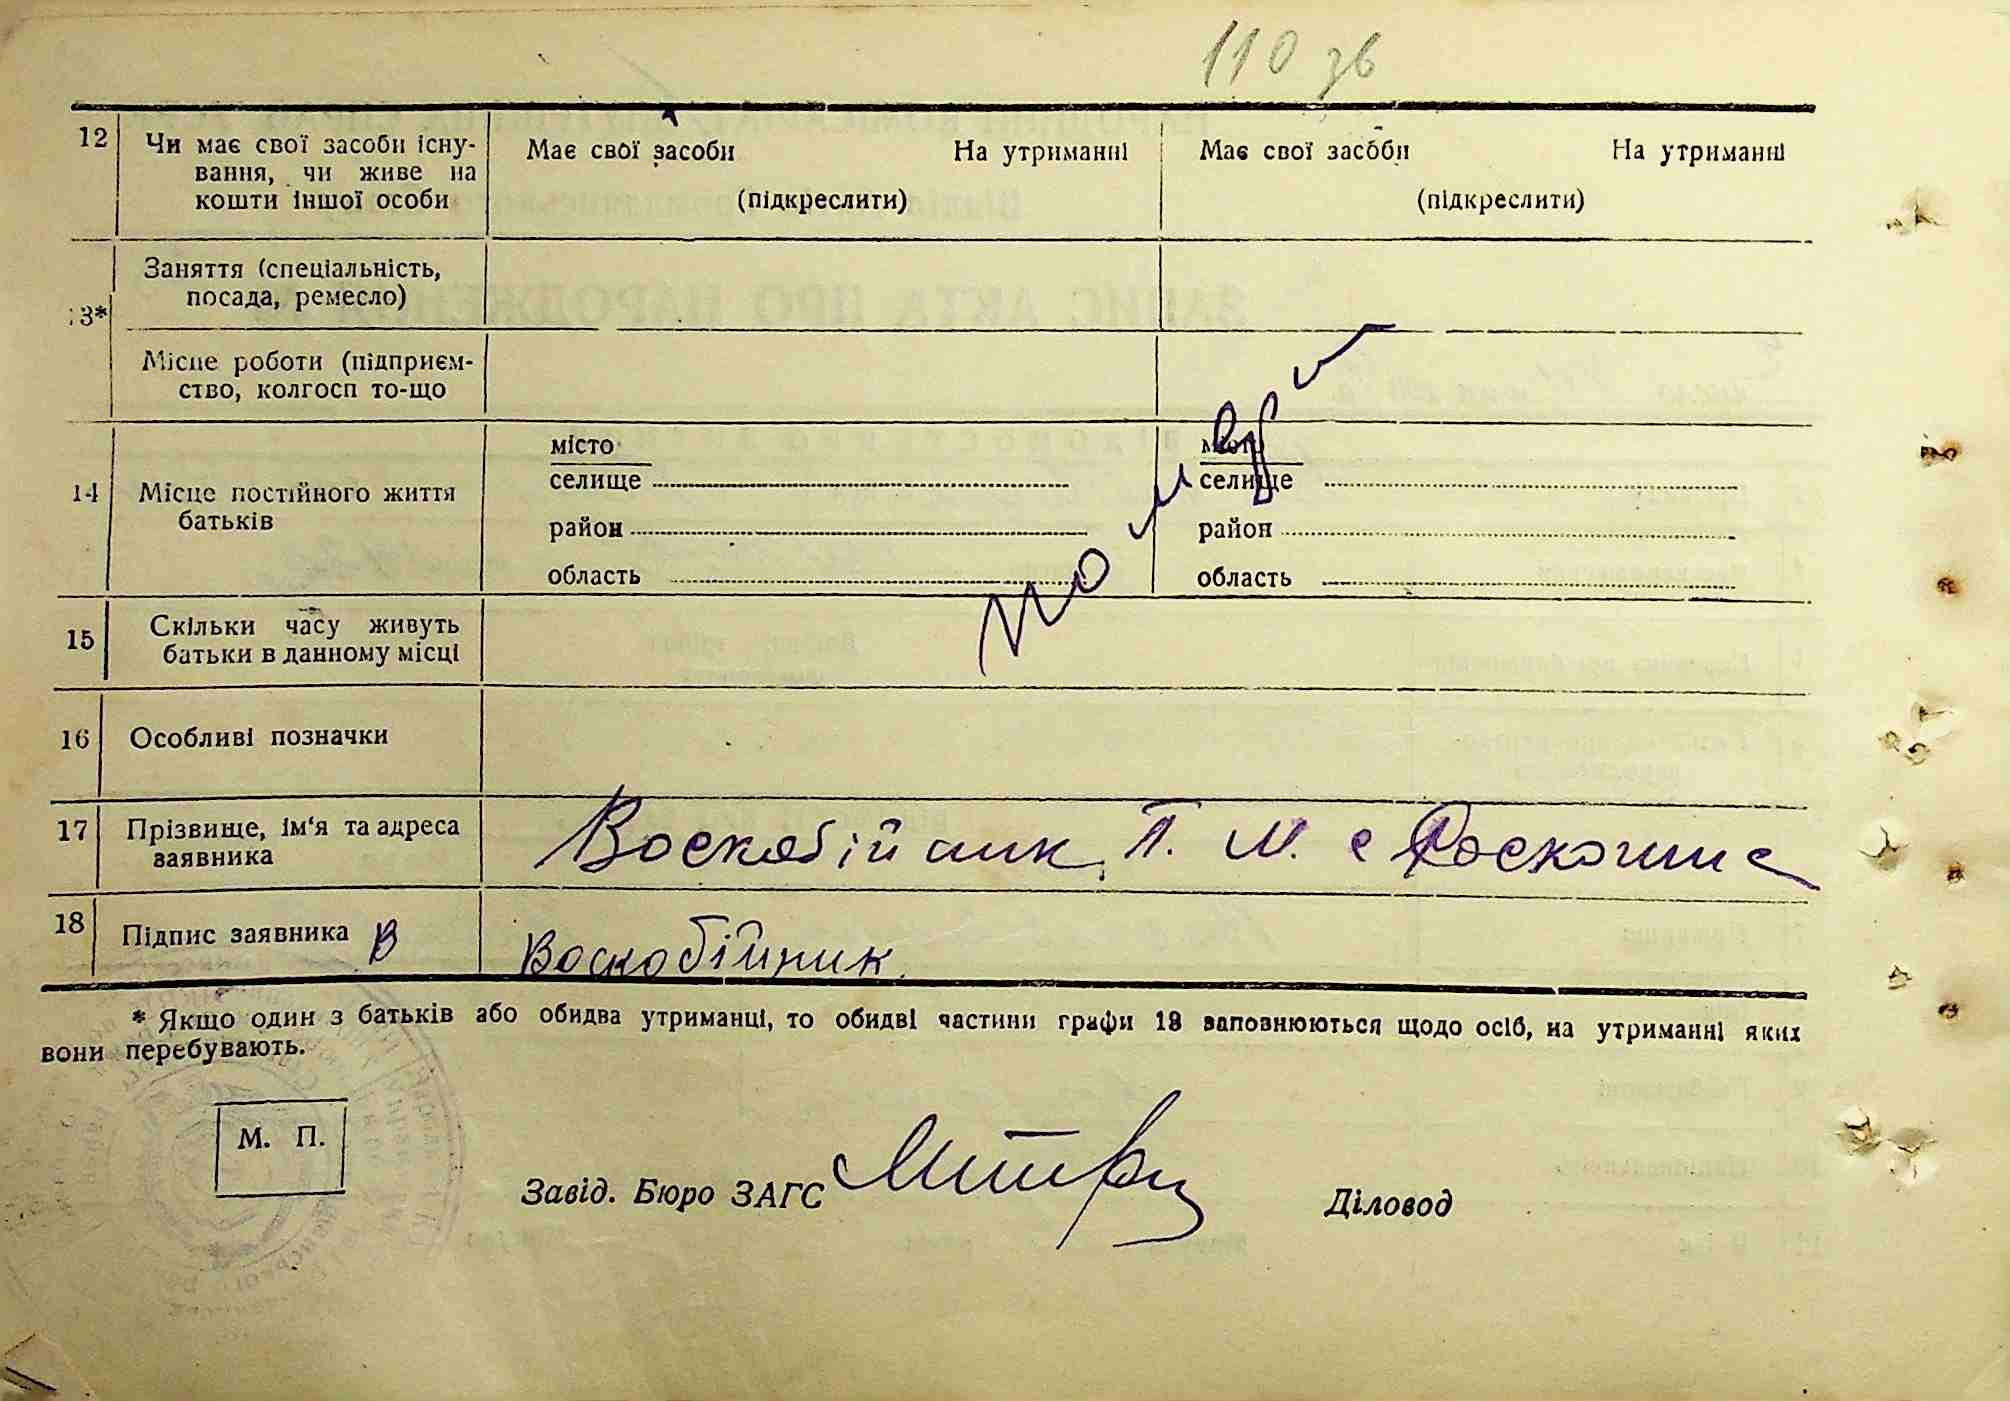 110 зв
12 Чи має свої засоби існу-
вання, чи живе на
кошти іншої особи
Має свої засоби На утриманні
(підкреслити)
Має свої засоби На утриманні
(підкреслити)
13* Заняття (спеціальність,
посада, ремесло)
Місце роботи (підприєм-
ство, колгосп то-що
14 Місце постійного життя
батьків
місто
селище
район
область
місто
селище
район
область
15 Скільки часу живуть
батьки в данному місці
помер
16 Особливі позначки
17 Прізвище, ім'я та адреса
заявника
Воскобійник П. М. с Роскошне
18 Підпис заявника В
Воскобійник
* Якщо один з батьків або обидва утриманці, то обидві частини графи 13 заповнюються щодо осіб, на утриманні яких
вони перебувають.
М. П.
Завід. Бюро ЗАГС
Діловод